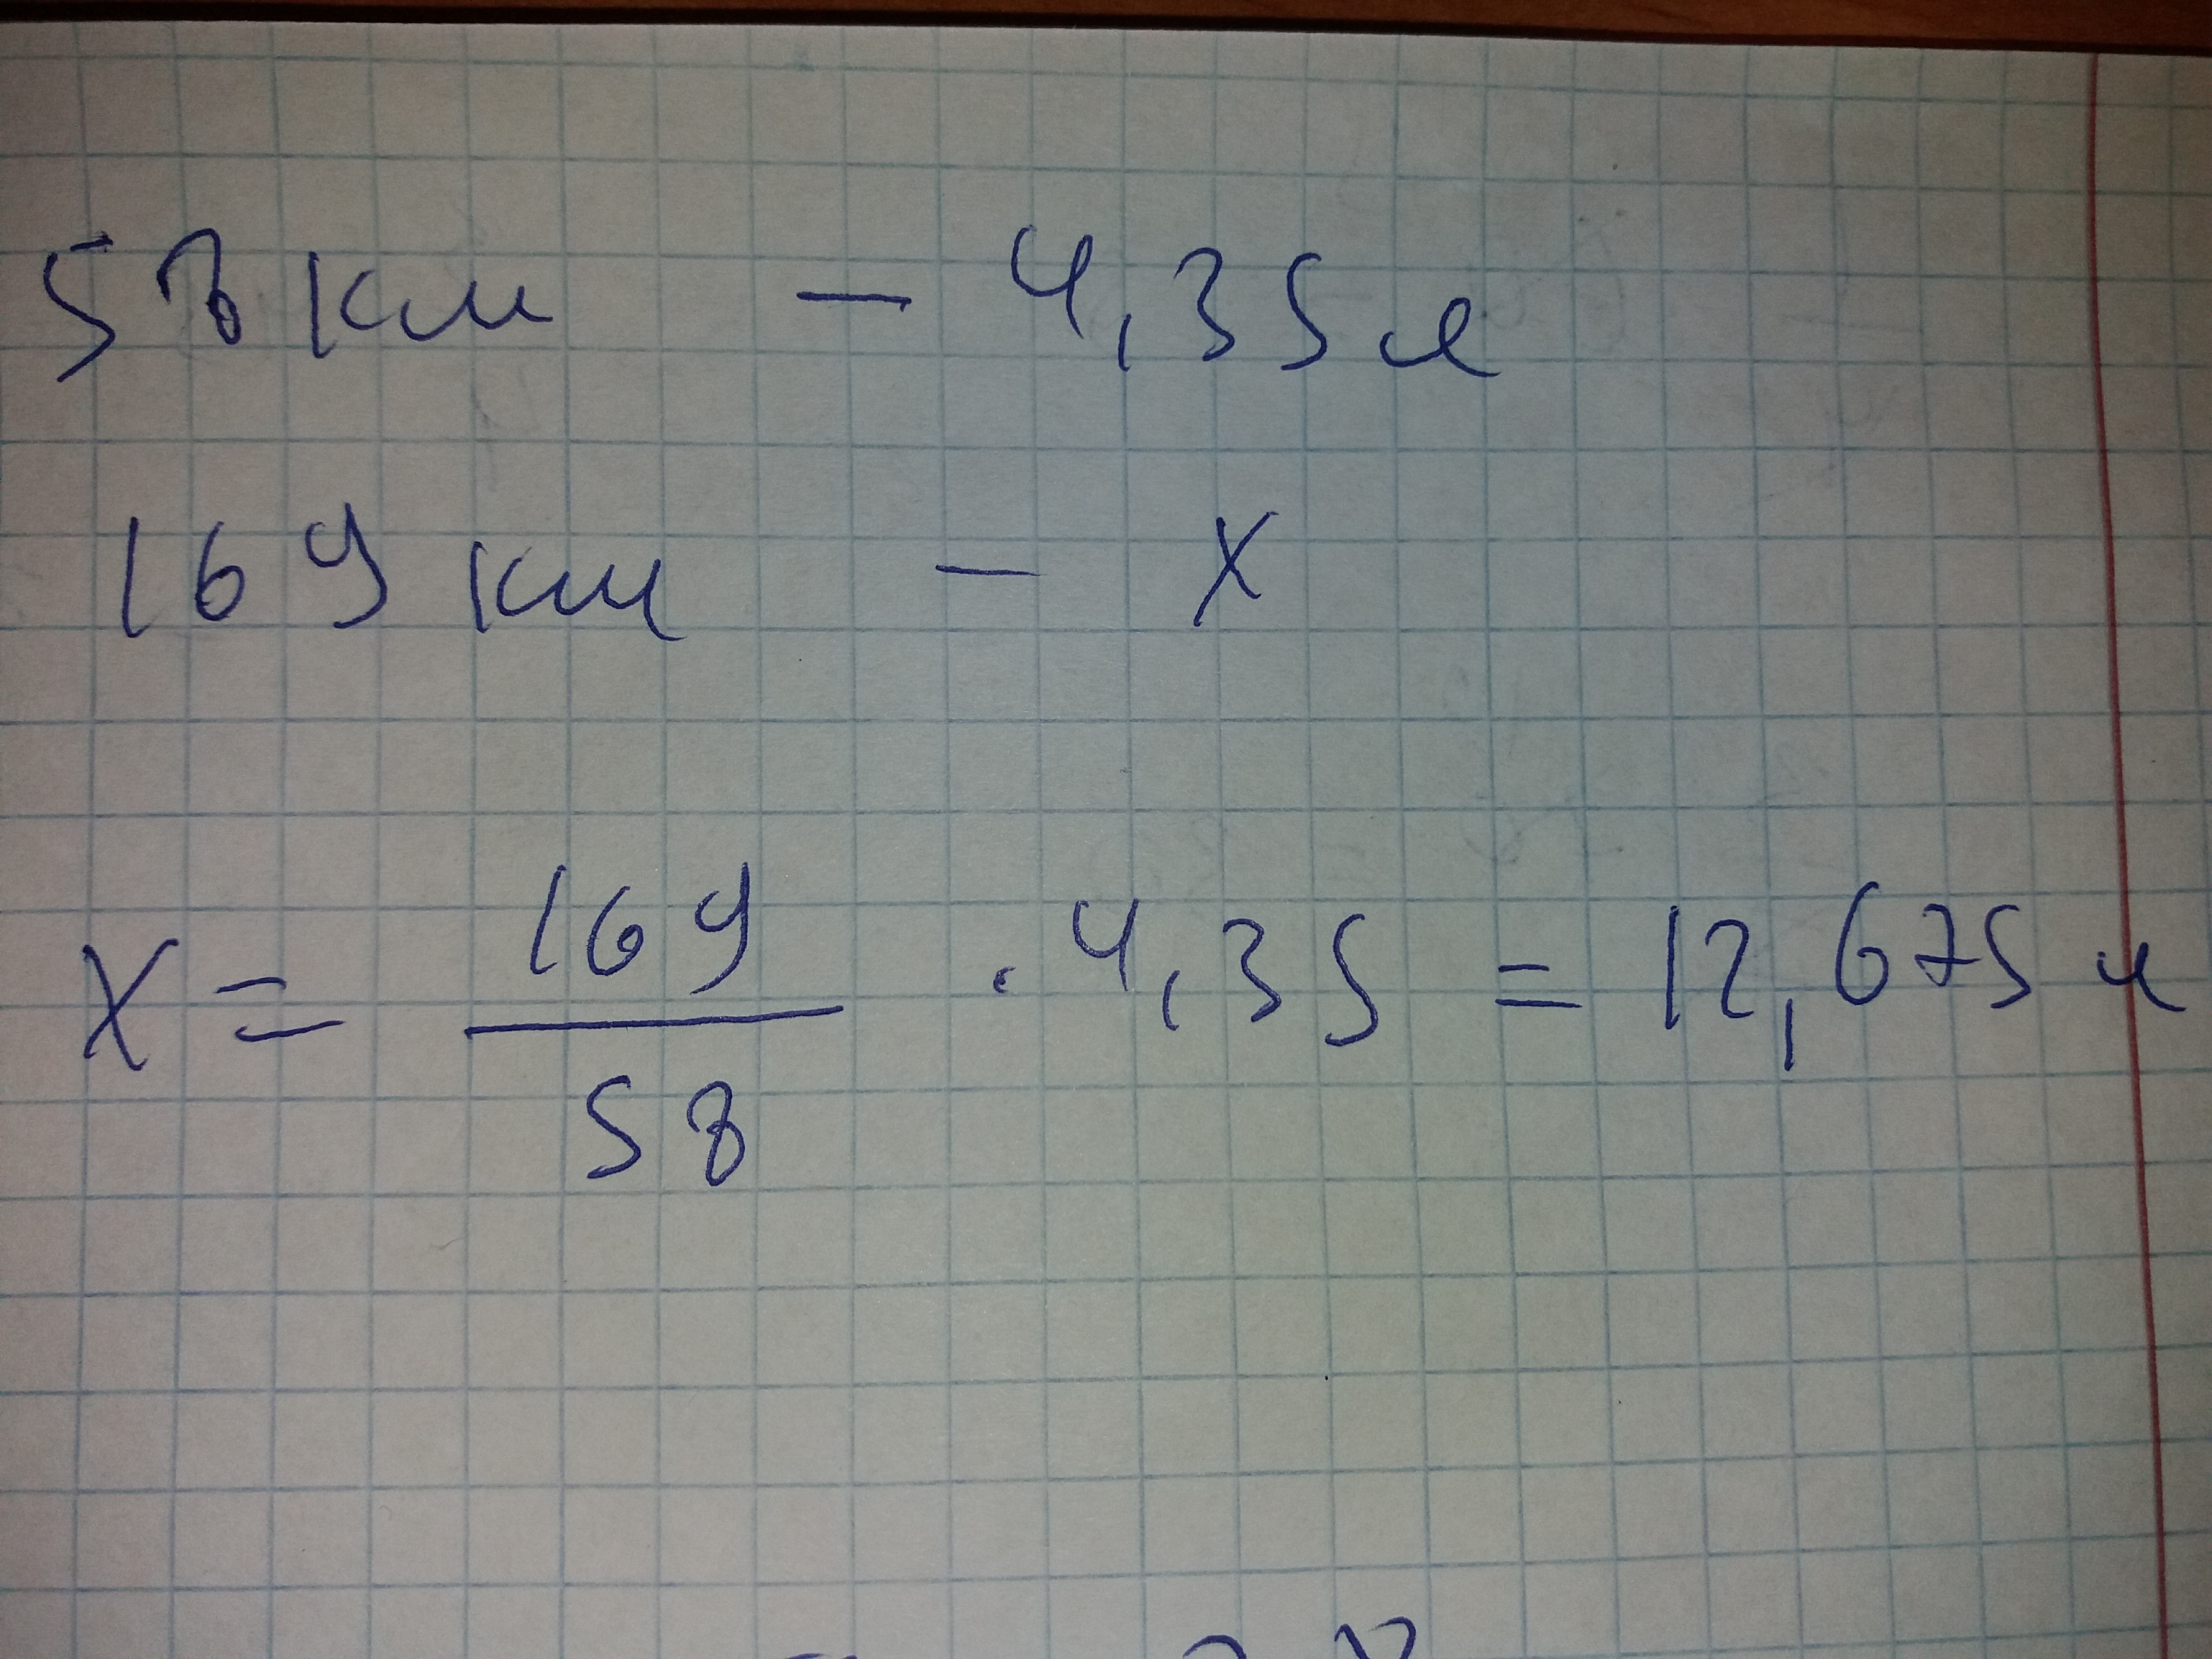 58 км - 4,35 л
169 км - x
x = 169/58 · 4,35 = 12,675 л